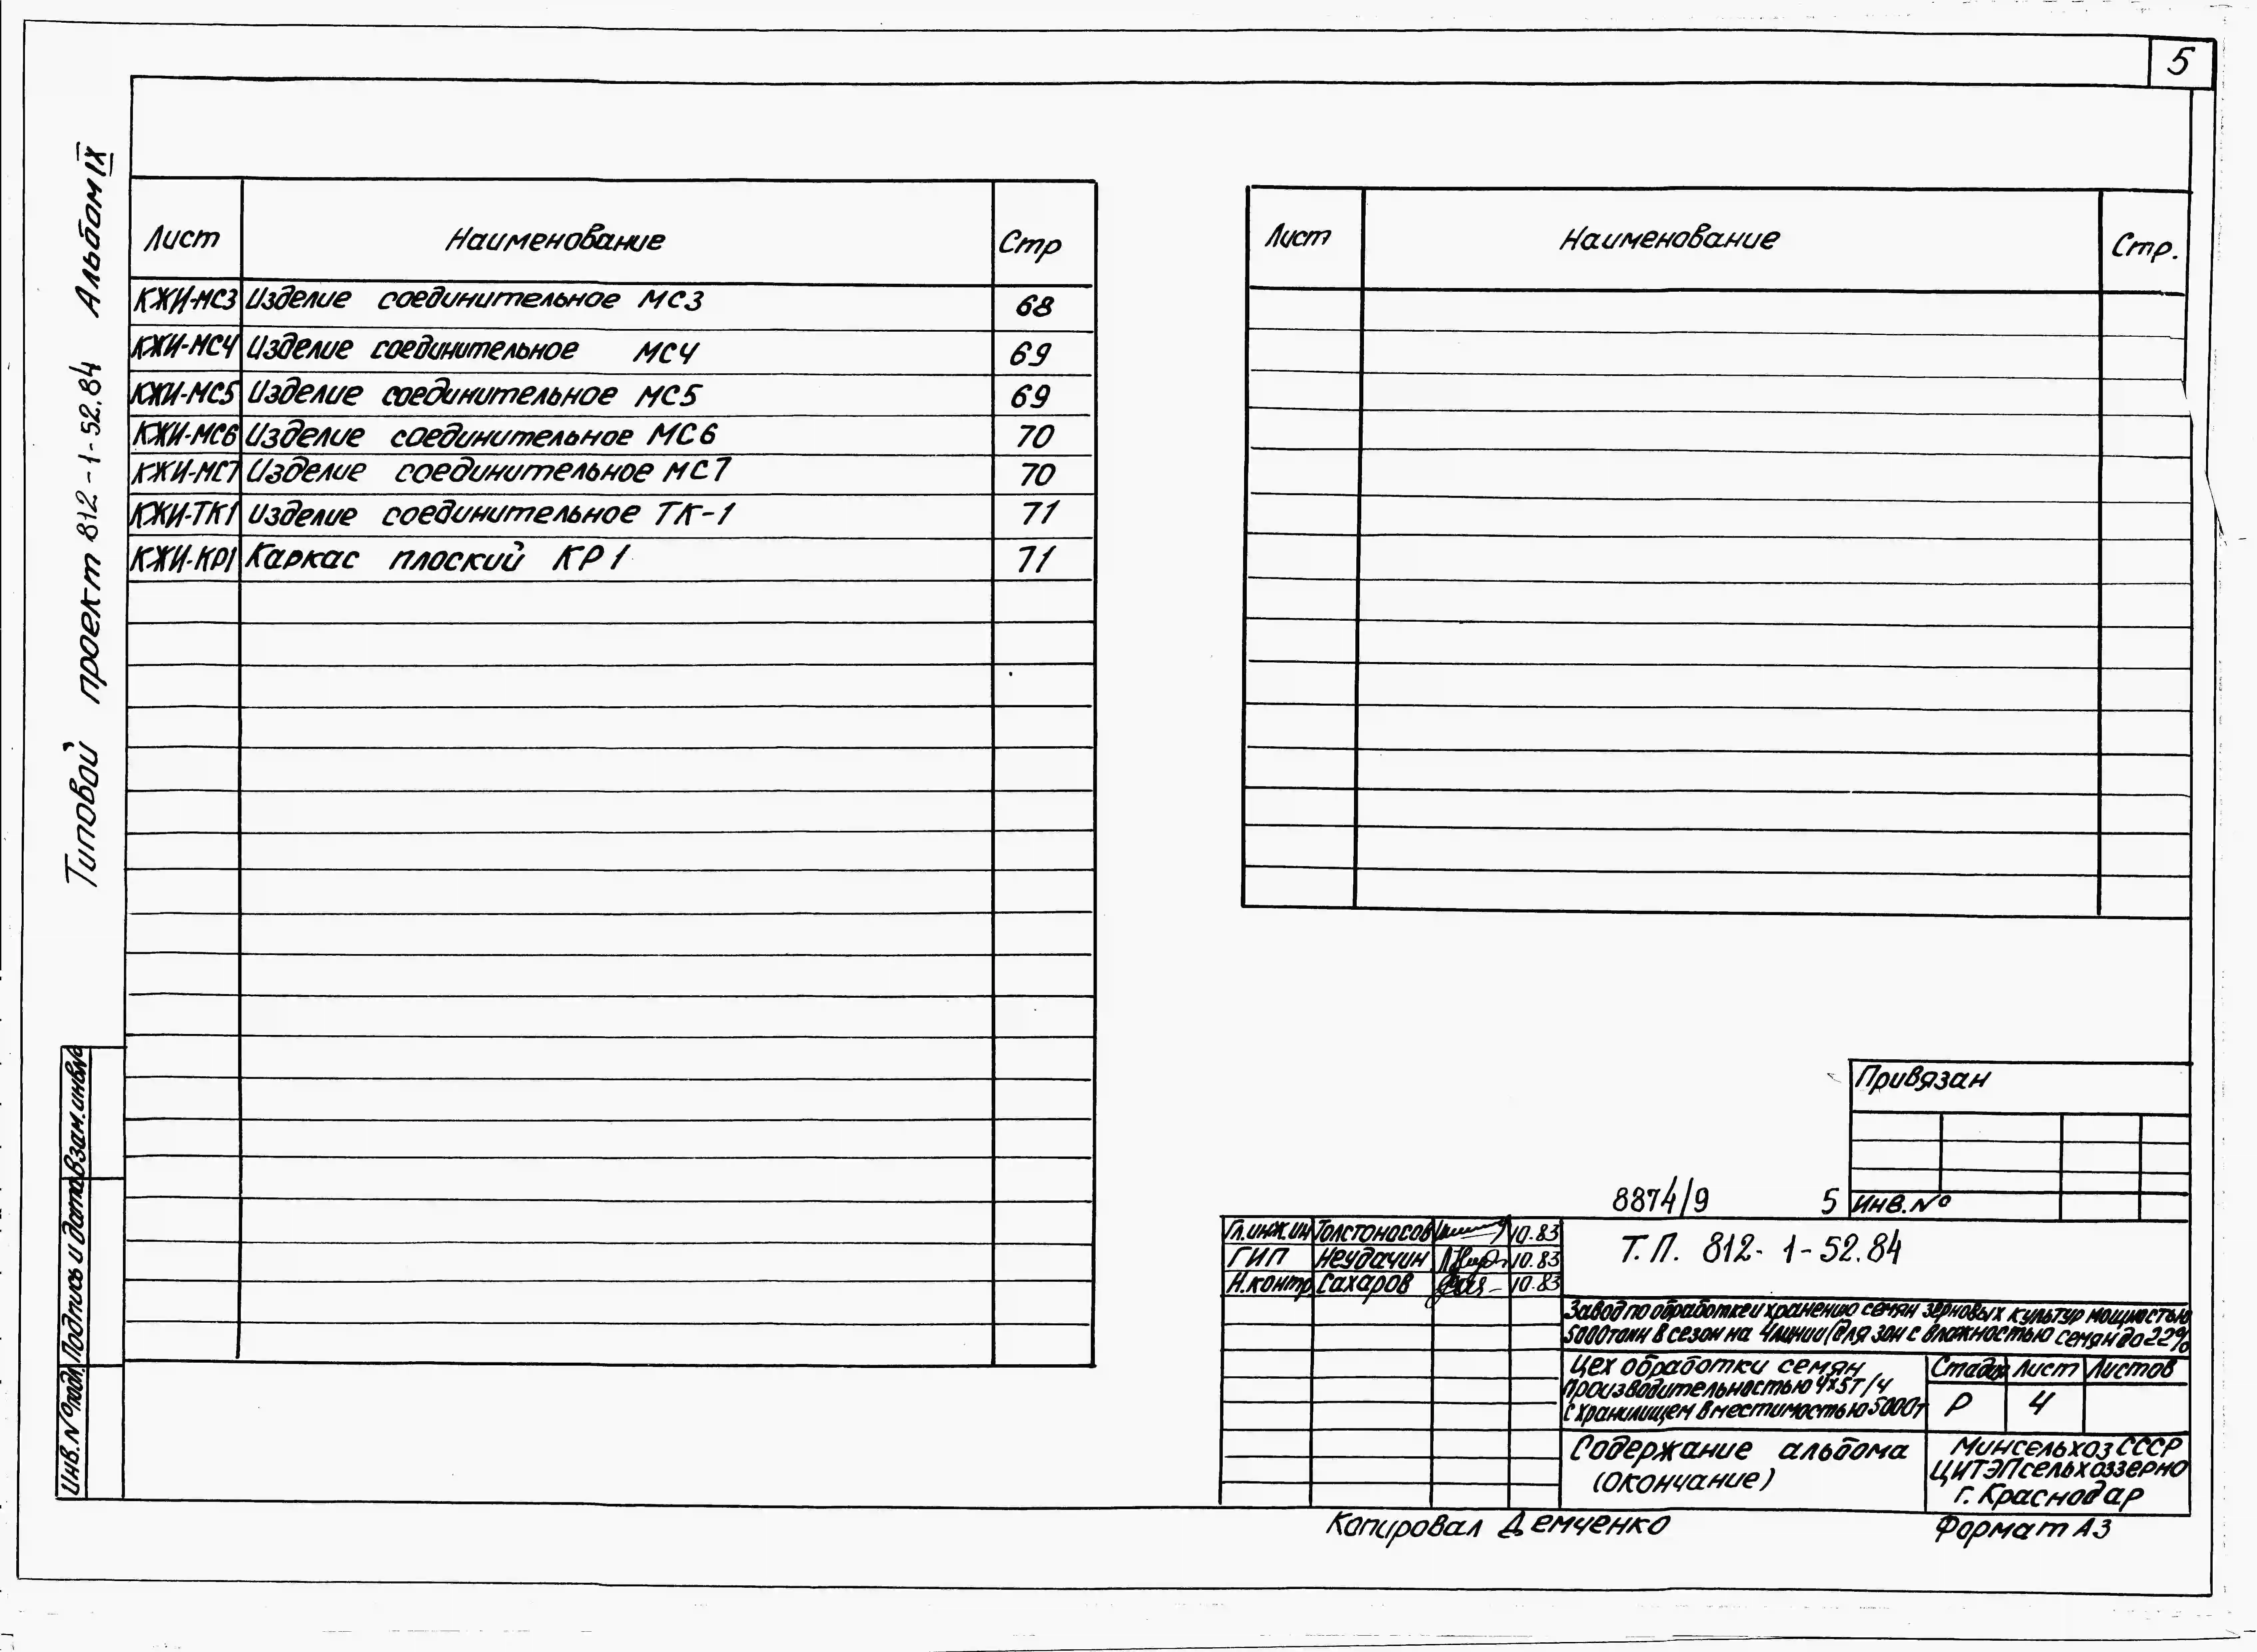 5
Типовой проект 812-1-52.84 Альбом IX
Лист Наименование Стр
КЖИ-МС3 Изделие соединительное МС3 68
КЖИ-МС4 Изделие соединительное МС4 69
КЖИ-МС5 Изделие соединительное МС5 69
КЖИ-МС6 Изделие соединительное МС6 70
КЖИ-МС7 Изделие соединительное МС7 70
КЖИ-ТК1 Изделие соединительное ТК-1 71
КЖИ-КР1 Каркас плоский КР1 71
Лист Наименование Стр.
Привязан
Инв.№
8874/9 5
Гл.инж.ин Толстоносов 10.83
ГИП Неудачин 10.83
Н.контр Сахаров 10.83
Т.П. 812-1-52.84
Завод по обработке и хранению семян зерновых культур мощностью
5000тонн в сезон на 4линии (для зон с влажностью семян до 22%
Цех обработки семян
производительностью 4х5т/ч
с хранилищем вместимостью 5000т
Стадия Лист Листов
Р 4
Содержание альбома
(окончание)
Минсельхоз СССР
ЦИТЭПсельхоззерно
г. Краснодар
Копировал Демченко
Формат А3
Взам.инв.№
Подпись и дата
Инв.№подл.